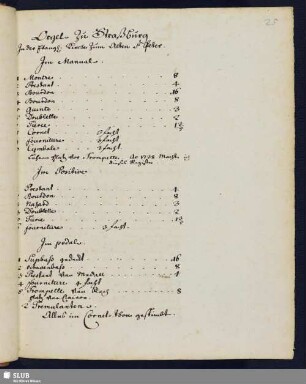 25
Orgel zu Straßburg
In der Evangl. Kirche zum Alten St. Peter.
Im Manual.
Montre 8
Prestant 4
Bourdon 16
Bourdon 8
Quinta 3
Doublette 2
Tierce 1 3/5
Cornet 5 fach
fourniture 3 fach
Cymbale 3 fach
Trompette
Im Positive
Prestant 4
Bourdon 8
Nazard 3
Doublette 2
Tierce 1 3/5
fourniture 3 fach
Im pedal
1 Supbass gedackt 16
2 octavenbass 8
3 Prestant 4
4 fourniture 4 fach
5 Trompette 8
2 Tremulanten
Alles im Cornet-Thon gestimmt.
SLUB